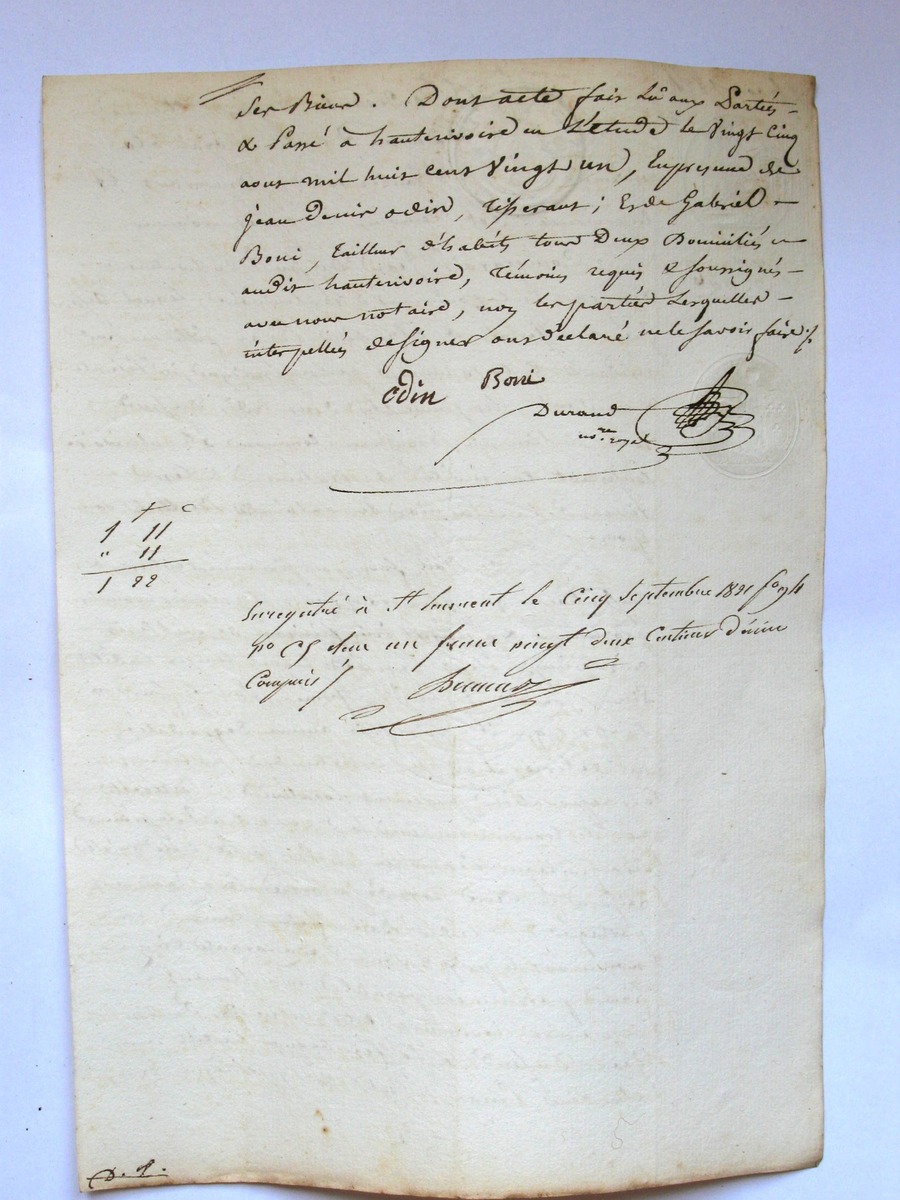 ses Biens. Dont acte fait Lû aux Parties
& Passé à hauterivoire en L'etude le Vingt Cinq
aout mil huit cent Vingt un, En presence de
jean denis odin, tisserant; Et de Gabriel
Boni, tailleur d'habits tous Deux Domiciliés
audit hauterivoire, témoins requis & soussignés
avec nous notaire, non les parties Lesquelles
interpellés de signer ont déclaré ne le savoir faire
odin Boni
Durand
nore royal
f c
1 11
" 11
1 22
Enregistré à St laurent le Cinq Septembre 1821 fo 94
no C5 deux un franc vingt deux Centimes décime
Compris
D. J.
5